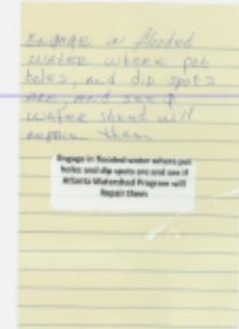 Engage in flooded
water where pot
holes, and dip spots
are, and see if
water shead will
repair them
Engage in flooded water where pot
holes and dip spots are and see if
Atlanta Watershed Program will
Repair them